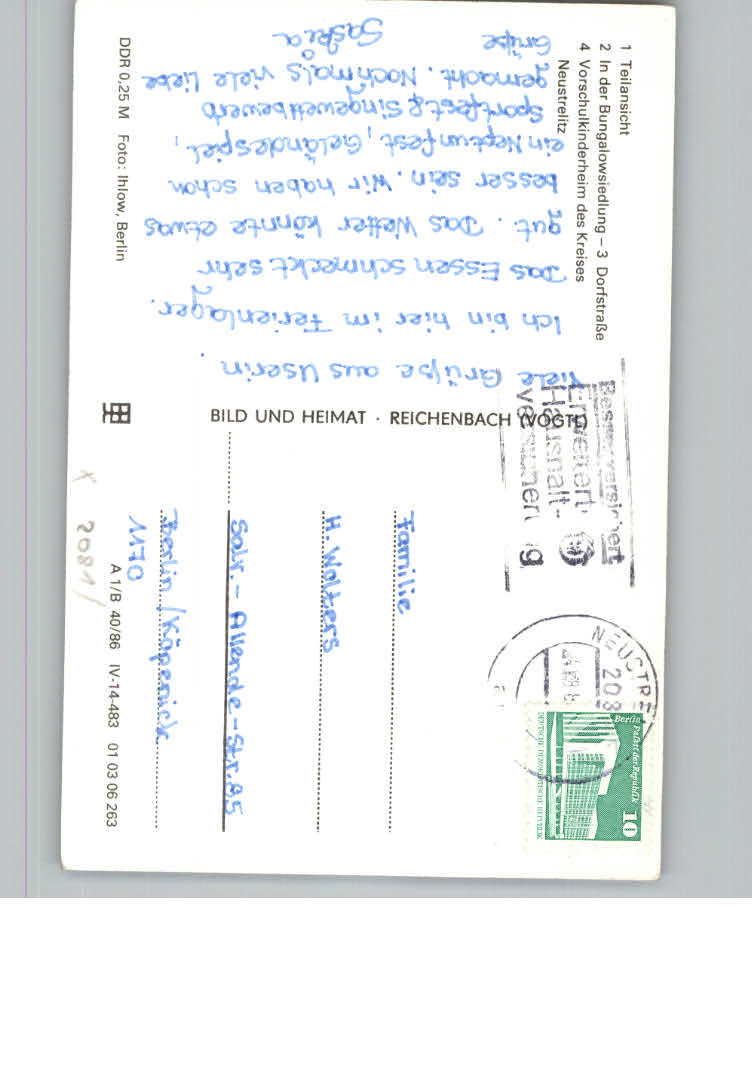 1 Teilansicht
2 In der Bungalowsiedlung – 3 Dorfstraße
4 Vorschulkinderheim des Kreises
Neustrelitz
Viele Grüße aus Userin.
Ich bin hier im Ferienlager.
Das Essen schmeckt sehr
gut. Das Wetter könnte etwas
besser sein. Wir haben schon
ein Neptunfest, Geländespiel,
Sportfest & Singewettbewerb
gemacht. Nochmals viele liebe
Grüße
Saskia
DDR 0,25 M Foto: Ihlow, Berlin
BILD UND HEIMAT · REICHENBACH (VOGTL)
Besser versichert
Erweiterte
Haushalt-
versicherung
NEUSTRE
203
Berlin Palast der Republik
10
DEUTSCHE DEMOKRATISCHE REPUBLIK
Familie
H. Wolters
Salv.-Allende-Str. 85
Berlin / Köpenick
1170
A 1/B 40/86 IV-14-483 01 03 06 263
x 2081/